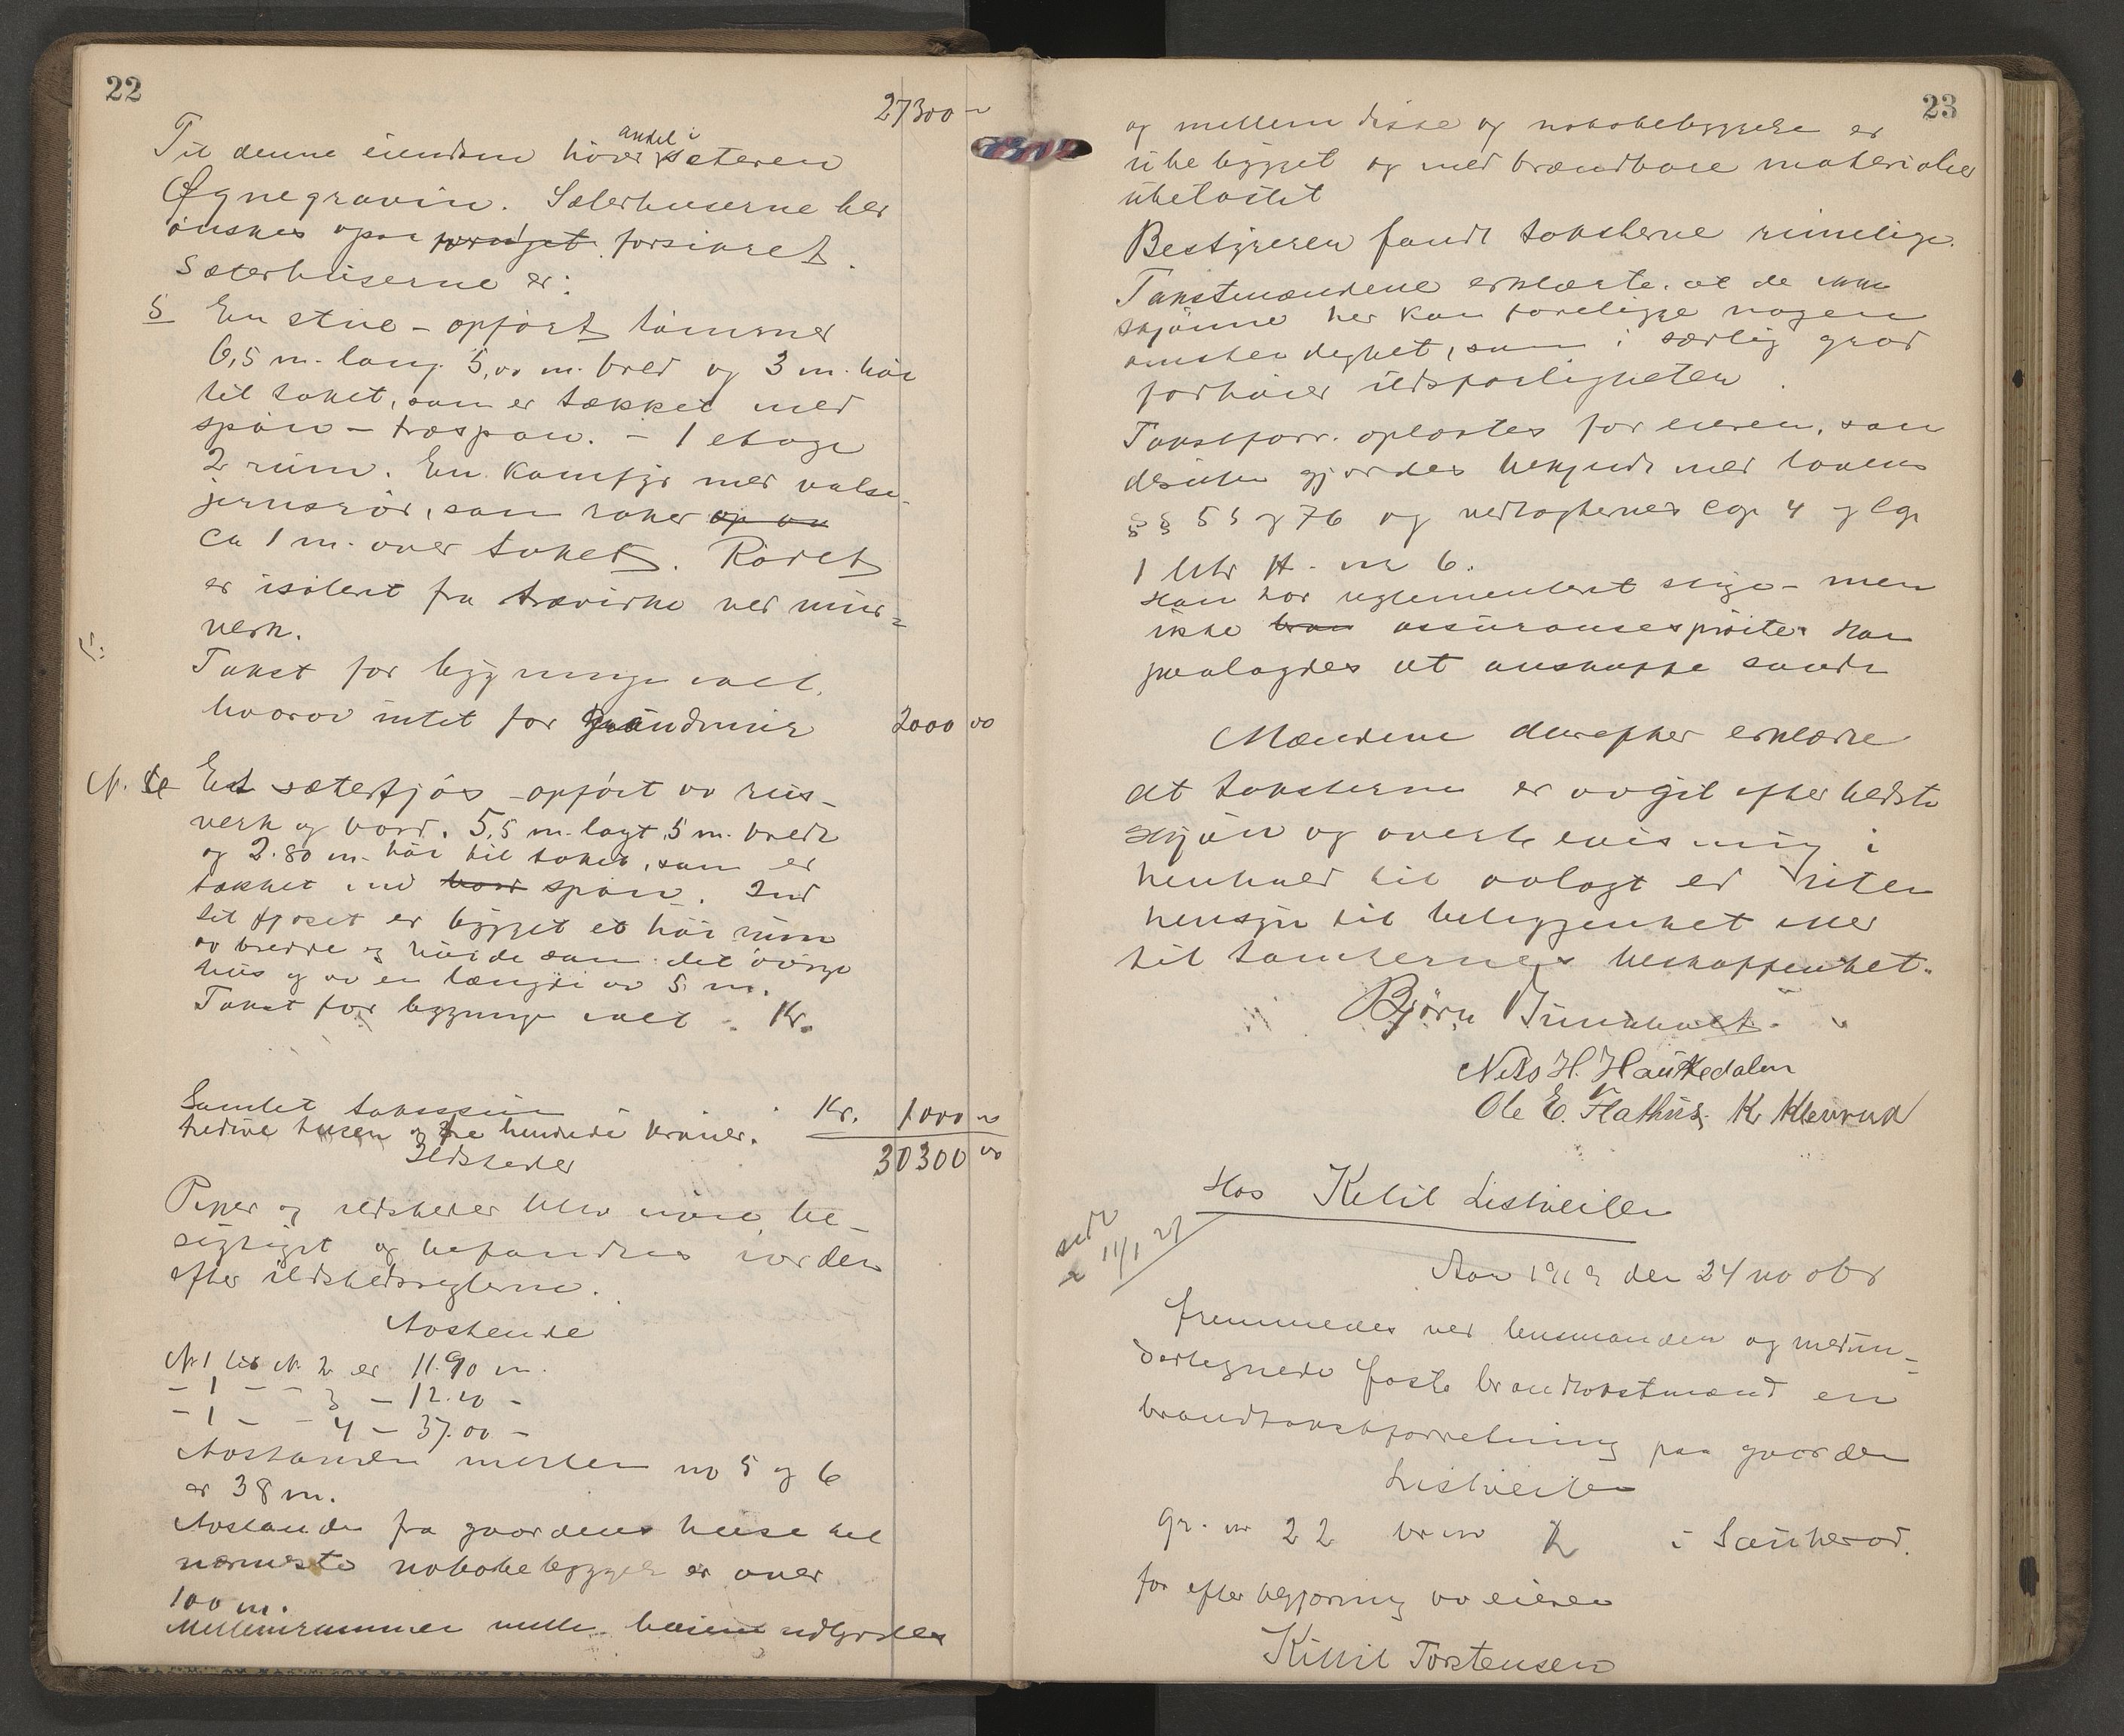 22
27300 -
Til denne eiendom hører andel i sæteren
Øgnegravin. Sæterhuserne her
ønskes ogsaa forsikret.
Sæterhuserne er:
5 En stue - opført tømmer
6,5 m. lang. 5,00 m. bred og 3 m. høi
til taket, som er tækket med
spon - træspon. - 1 etage
2 rum. En Komfyr med valse-
jernsrør, som raker op av
ca 1 m. over taket. Røret
er isolert fra trævirke ved mur=
verk.
Takst for bygningen ialt,
hvorav intet for grundmur 2000 00
N. 6 Et sæterfjøs - opført av reis-
verk og bord. 5,5 m. langt, 5 m. bredt
og 2.80 m. høi til taket, som er
tækket med bord spon. Ind
til fjøset er bygget et høi rum
av bredde og høide som det øvrige
hus og av en længde av 5 m.
Takst for bygninge ialt. Kr.
Kr. 1000 00
Samlet takstsum
tredive tusen og tre hundrede kroner. 30300 00
Ildsteder
Piper og ildsteder blev nøie be-
sigtiget og befandtes i orden
efter ildstedsreglerne.
Avstande
N. 1 til N. 2 er 11.90 m.
- 1 - - 3 - 12.00 -
- 1 - - 4 - 37.00 -
Avstanden mellem no 5 og 6
er 38 m.
Avstanden fra gaardens huse til
nærmeste nabobebyggelse er over
100 m.
Mellemrummen mellem husene
23
og mellem disse og nabobebyggelse er
ubebygget og med brændbare materialier
ubelastet
Bestyreren fandt taksterne rimelige.
Takstmændene erklærte at de ikke
skjønner her kan foreligge nogen
omstendighet, som i særlig grad
forhøier ildsfarligheten.
Takstforr. oplæstes for eieren, som
desuten gjordes bekjendt med lovens
§§ 55 og 76 og vedtægternes Cap 4 og Cap
1 litr H. nr 6.
Han har reglementert stige - men
ikke assuransesprøite. Han
paalagdes at anskaffe saadn
Mændene derefter erklærte
at taksterne er avgit efter bedste
skjøn og overbevisning i
henhold til avlagt ed uten
hensyn til beliggenhet eller
til tomternes beskaffenhet.
Bjørn
Nils H. Haukedalen
Ole E. Flathus K Klevrud
Hos Ketil Listveiten
11/1 21
Aar 1919 den 24 no obr
fremmedes ved lensmanden og medun-
dertegnede faste brandtakstmænd en
brandtakstforretning paa gaarden
Listveiten
gr. nr 22 br nr 2 i Sauherad.
for efter begjæring av eieren
Kittil Torstensen